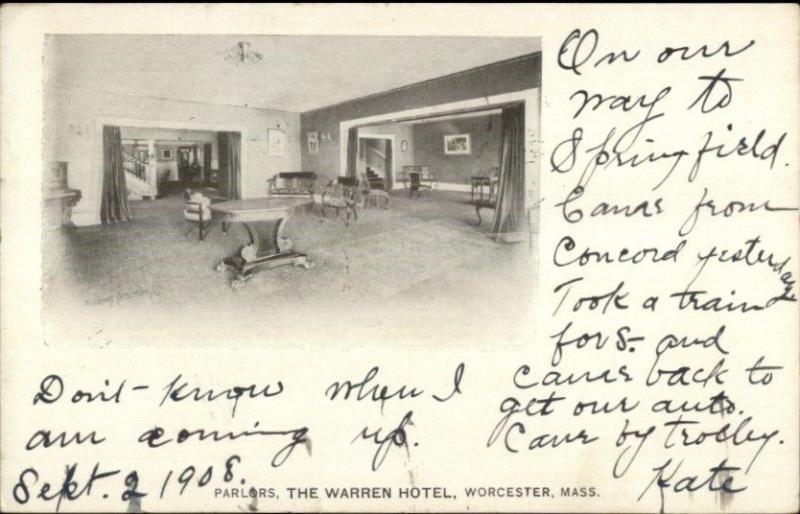 On our
way to
Springfield.
Came from
Concord yesterday
Took a train
for S- and
came back to
get our auto.
Came by trolley.
Kate
Don't know when I
am coming up.
Sept. 2 1908.
PARLORS, THE WARREN HOTEL, WORCESTER, MASS.